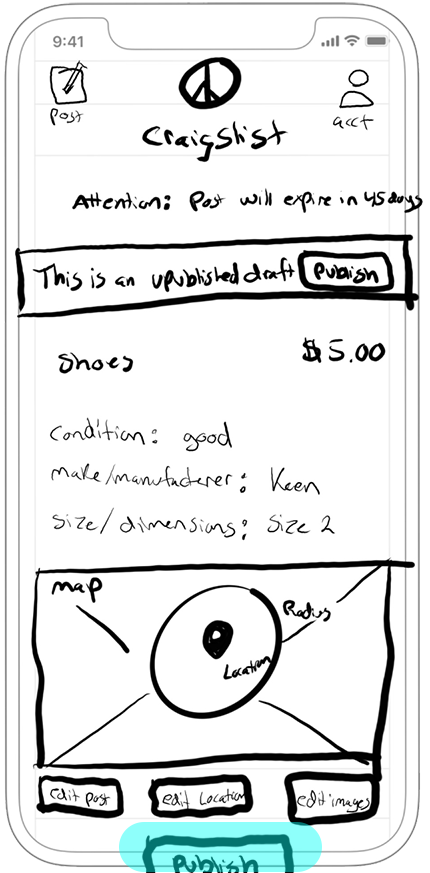 9:41
Post
acct
Craigslist
Attention: Post will expire in 45 days
This is an upublished draft Publish
Shoes $5.00
Condition: good
make/manufacterer: Keen
Size/dimensions: Size 2
map
Radius
Location
edit Post edit Location edit images
Publish